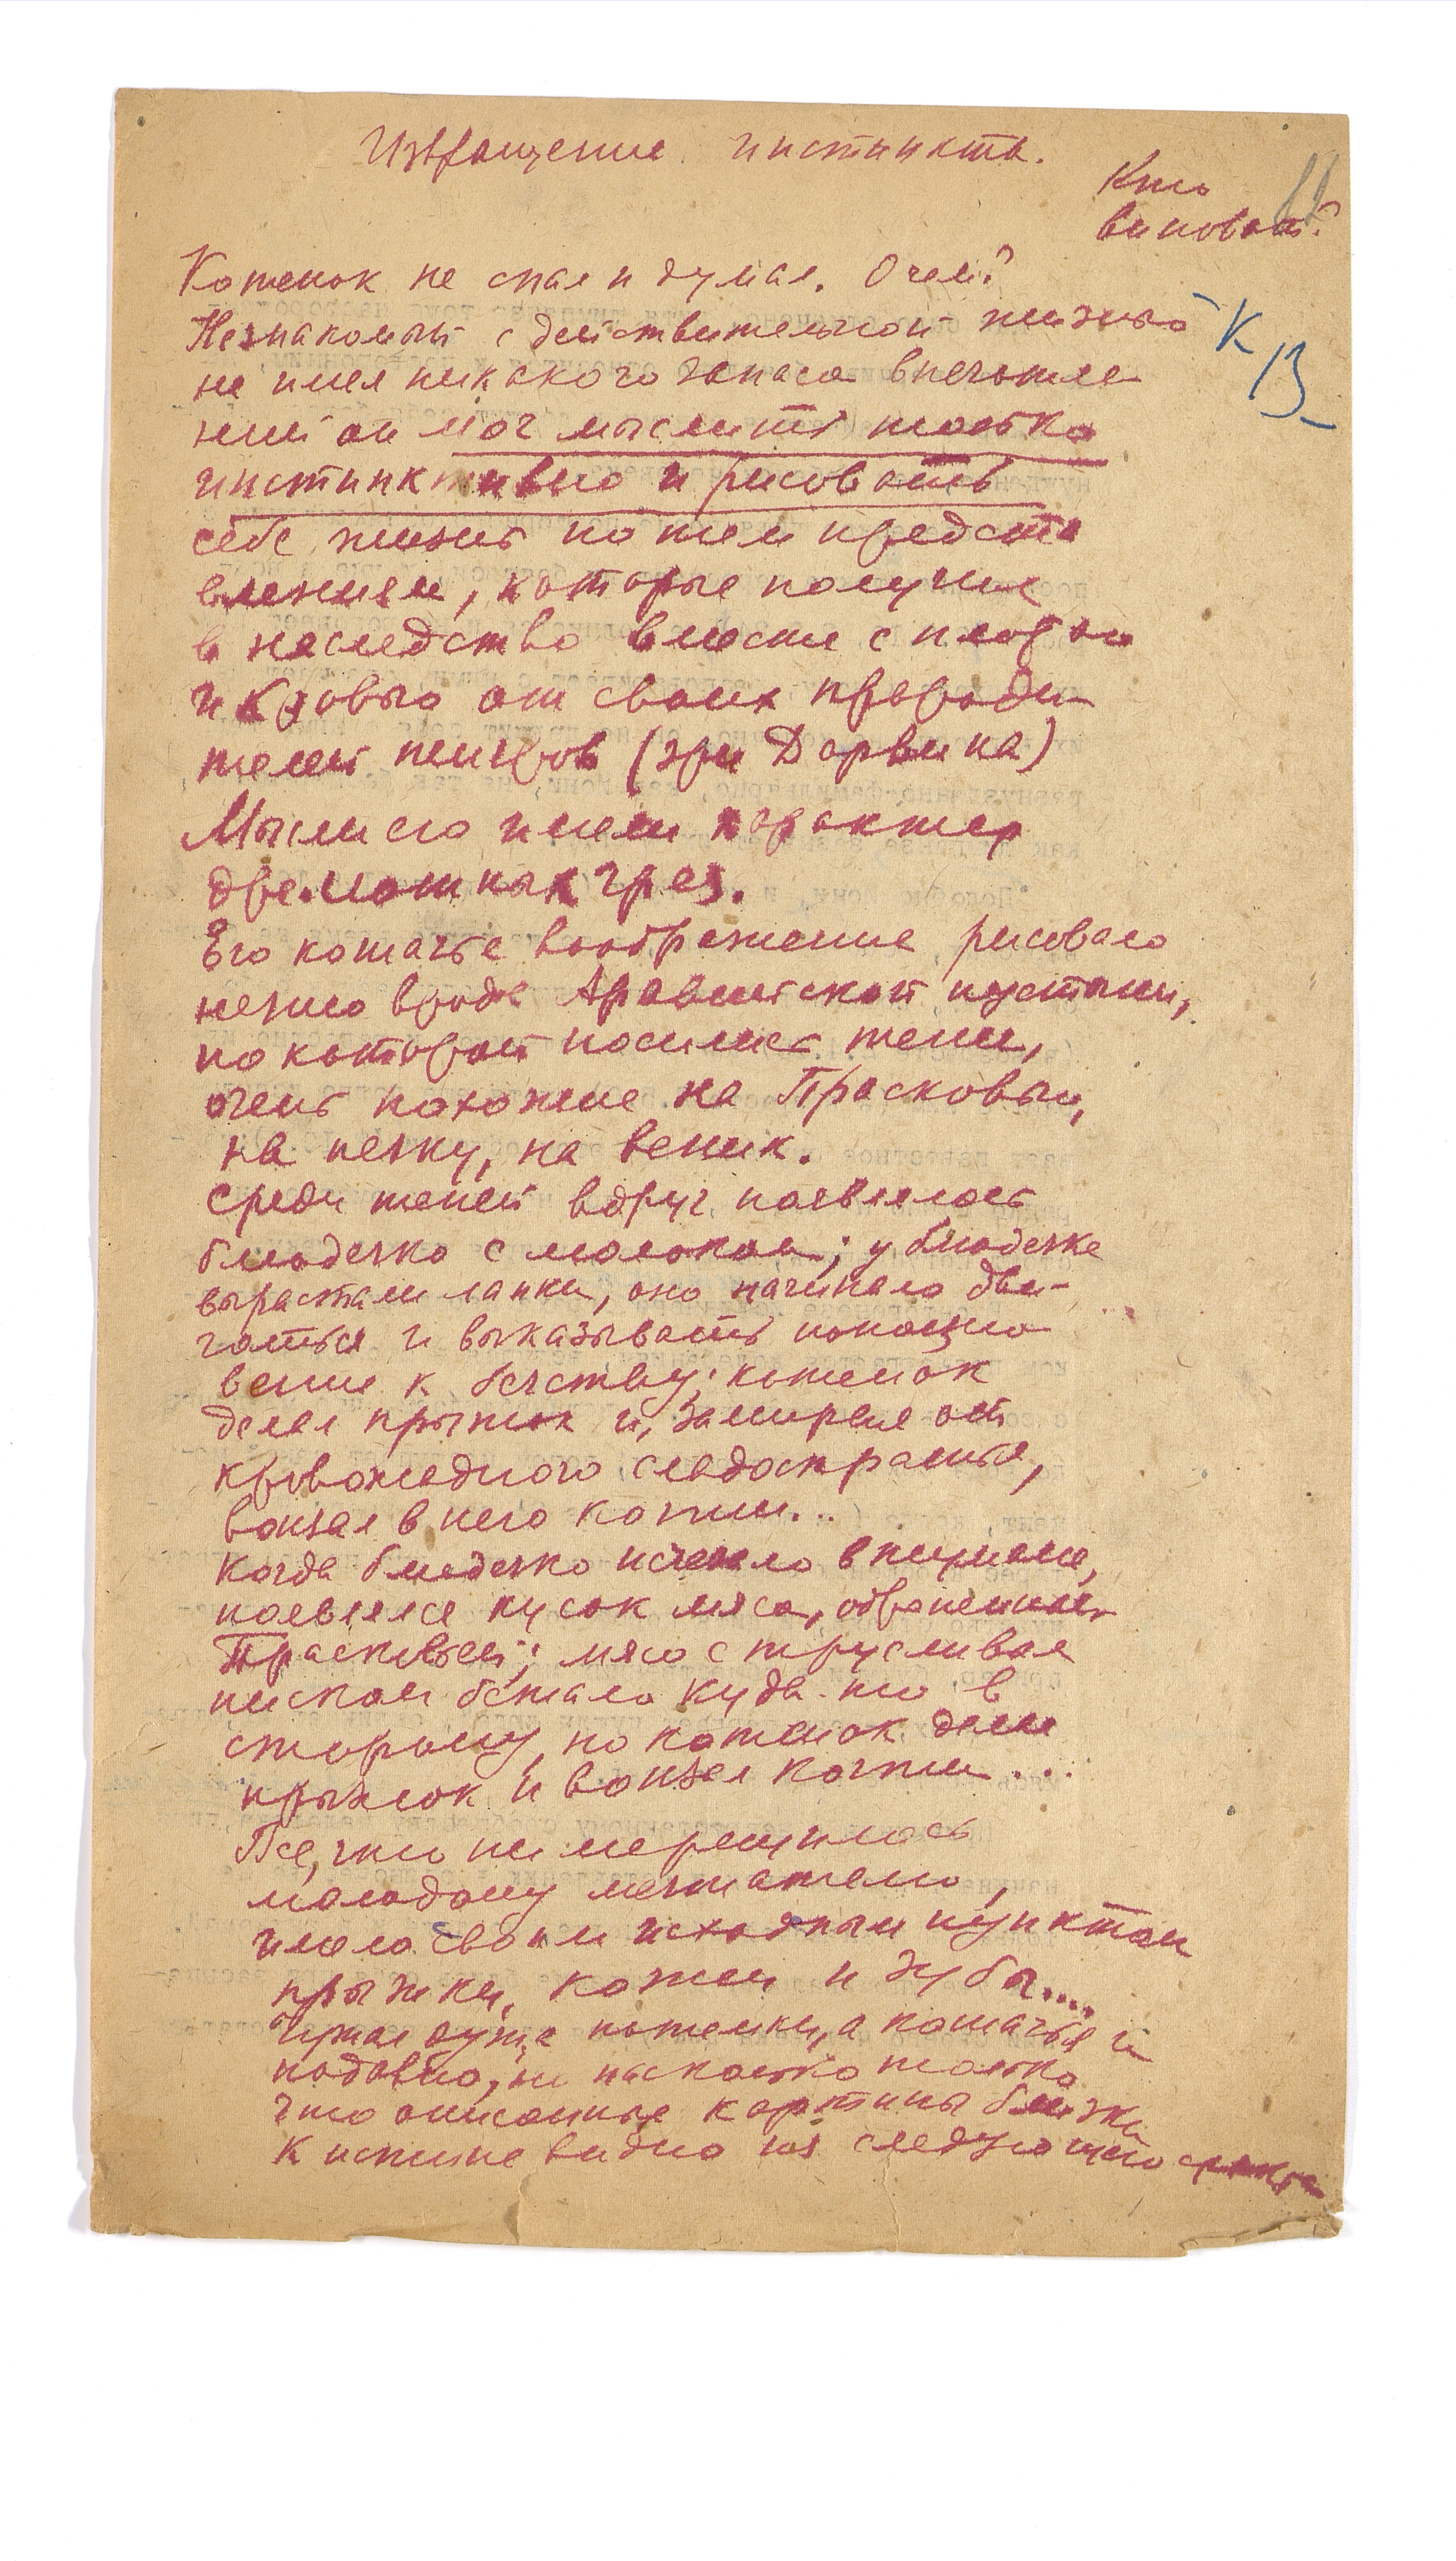 Извращение инстинкта.
Кто
виноват?
Котенок не спал и думал. О чем?
Незнакомый с действительной жизнью
К
В
не имея никакого запаса впечатле
ний он мог мыслить только
инстинктивно и рисовать
себе жизнь по тем предста
влениям, которые получил
в наследство вместе с плотью
и кровью от своих прароди
телей тигров (зри Дарвина)
Мысли его имели характер
дремотных грез.
Его кошачье воображение рисовало
нечто вроде Аравийской пустыни,
по которой носились тени,
очень похожие на Прасковью,
на печку, на веник.
Среди теней вдруг появлялось
блюдечко с молоком; у блюдечка
вырастали лапки, оно начинало дви-
гаться и выказывать поползно
вение к бегству; котенок
делал прыжок и, замирая от
кровожадного сладострастья,
вонзал в него когти...
Когда блюдечко исчезало в тумане,
появлялся кусок мяса, оброненный
Прасковьей; мясо с трусливым
писком бежало куда-то в
сторону, но котенок делал
прыжок и вонзал когти...
Все, что ни мерещилось
молодому мечтателю,
имело своим исходным пунктом
прыжки, когти и зубы....
Чужая душа потемки, а кошачья и
подавно, но насколько только
что описанные картины близки
к истине видно из следующего